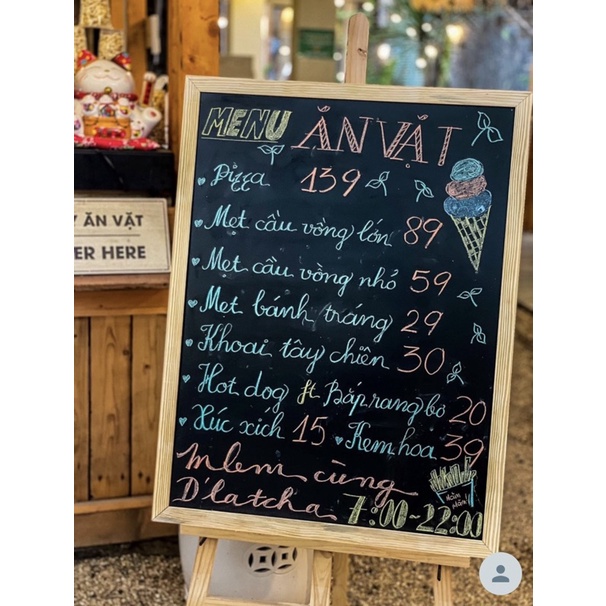 MENU ĂN VẶT
Pizza 139
Mẹt cầu vồng lớn 89
Mẹt cầu vồng nhỏ 59
Mẹt bánh tráng 29
Khoai tây chiên 30
Hot dog ft Bắp rang bơ 20
Xúc xich 15 Kem hoa 39
Mlem cùng
D'latcha 7:00~22:00
Y ĂN VẶT
ER HERE